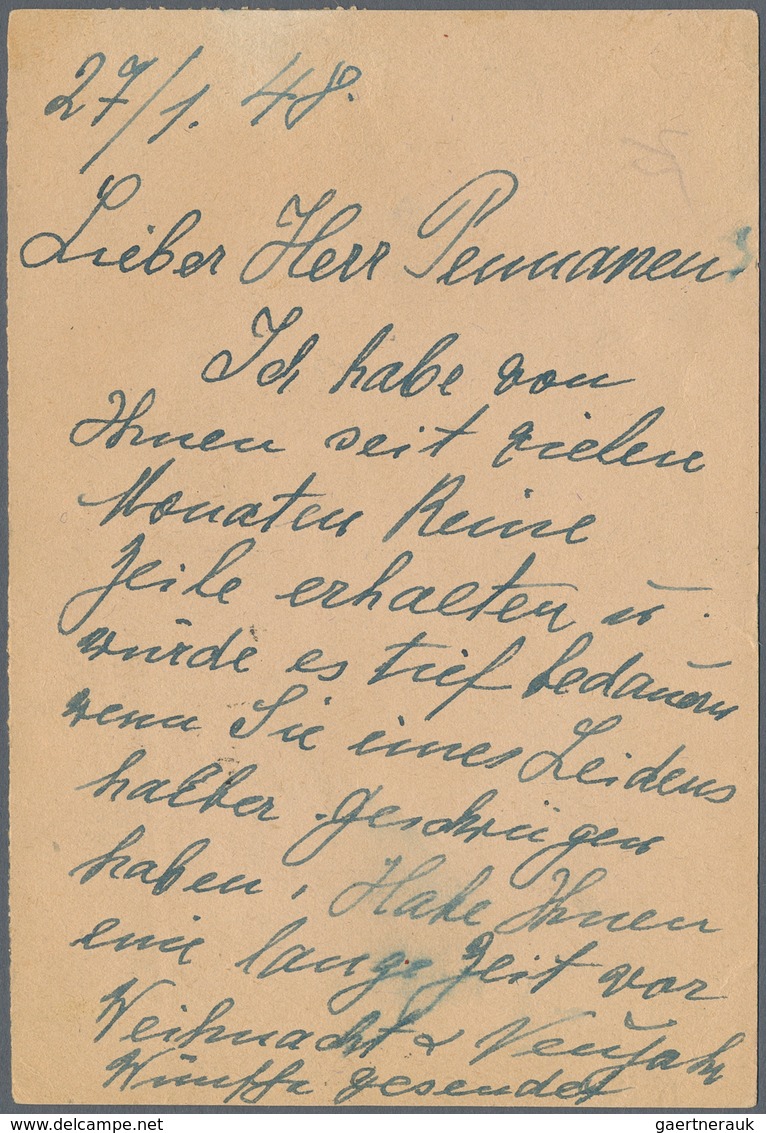 27/1. 48.
Lieber Herr Pennanen
Ich habe von
Ihnen seit vielen
Monaten keine
Zeile erhalten u.
würde es tief bedauern
wenn Sie eines Leidens
halber geschwiegen
haben. Habe Ihnen
eine lange Zeit vor
Weihnacht & Neujahr
Wünsche gesendet
gaertnerauk